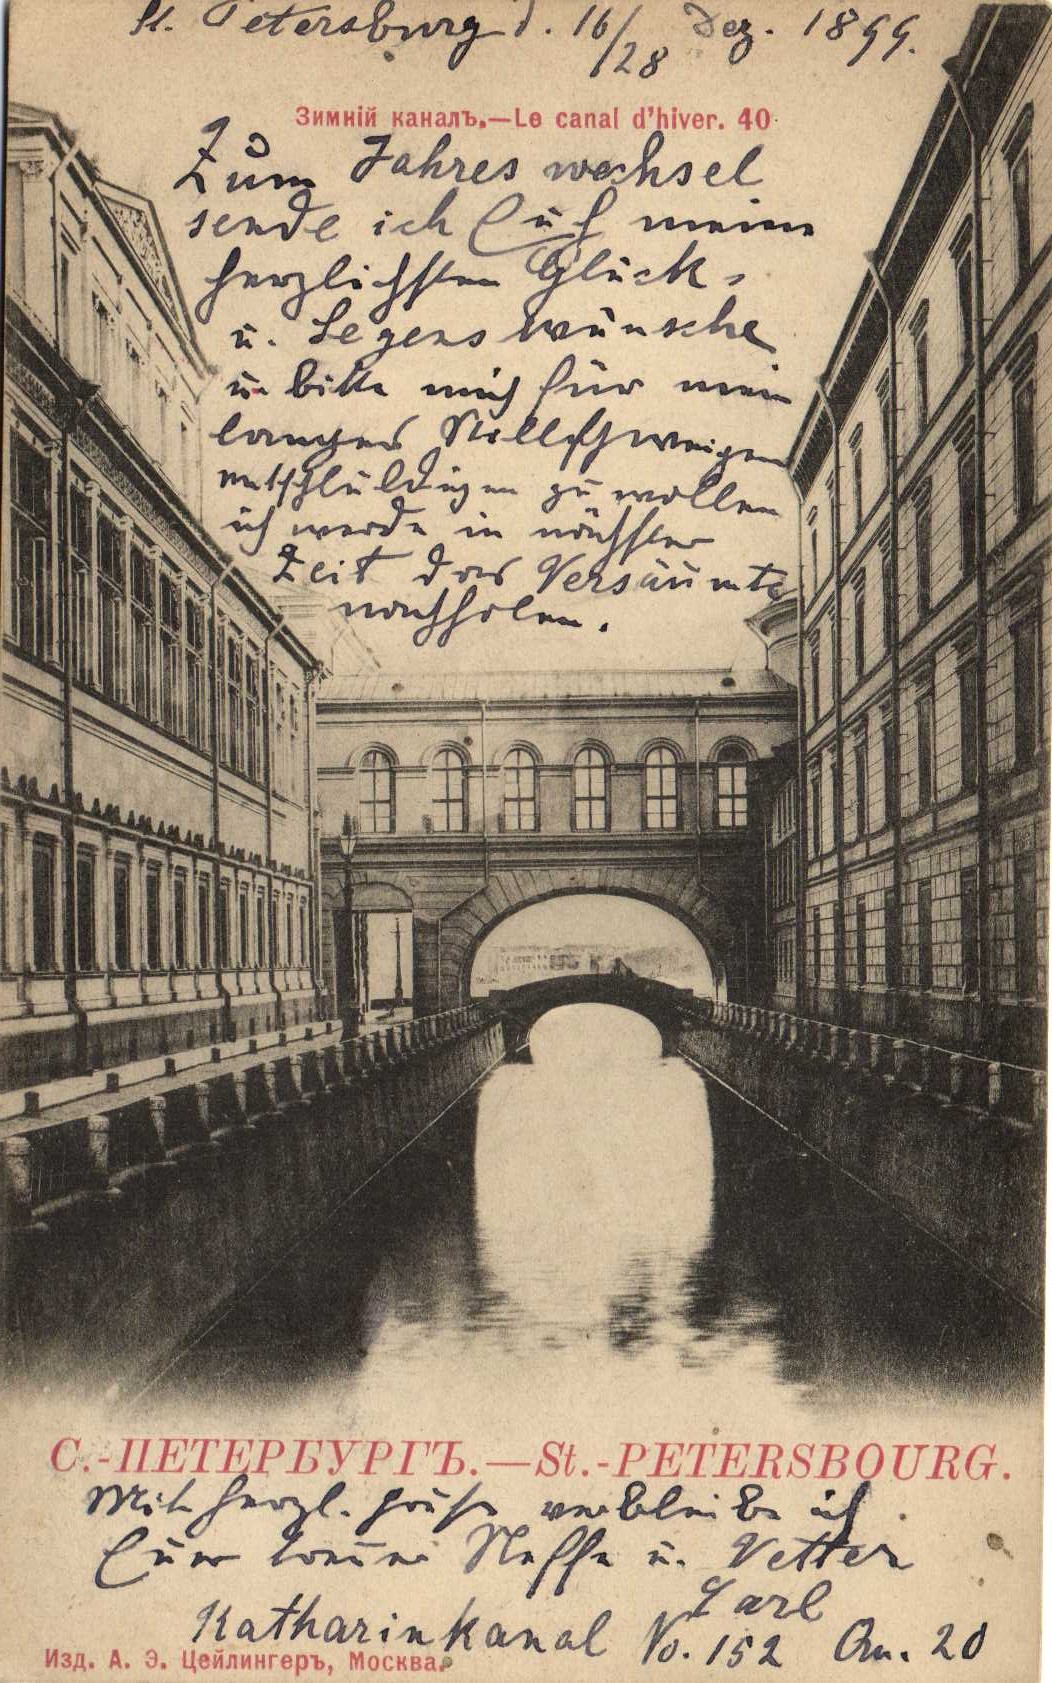 St. Petersburg d. 16/28 Dez. 1899.
Зимній каналъ.—Le canal d'hiver. 40
Zum Jahreswechsel
sende ich Euch meine
herzlichsten Glück-
u. Segenswünsche
u. bitte mich für mein
langes Stillschweigen
entschuldigen zu wollen
ich werde in nächster
Zeit das Versäumte
nachholen.
С.-ПЕТЕРБУРГЪ.—St.-PETERSBOURG.
Mit herzl. Gruß verbleibe ich
Euer treuer Neffe u. Vetter
Carl
Katharinkanal No. 152 Qu. 20
Изд. А. Э. Цейлингеръ, Москва.